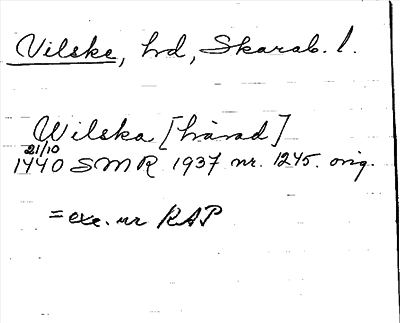 Vilske, hd, Skarab. l.
Wilska [härad]
21/10
1440 SMR 1937 nr. 1245. orig.
= exc. ur RAP